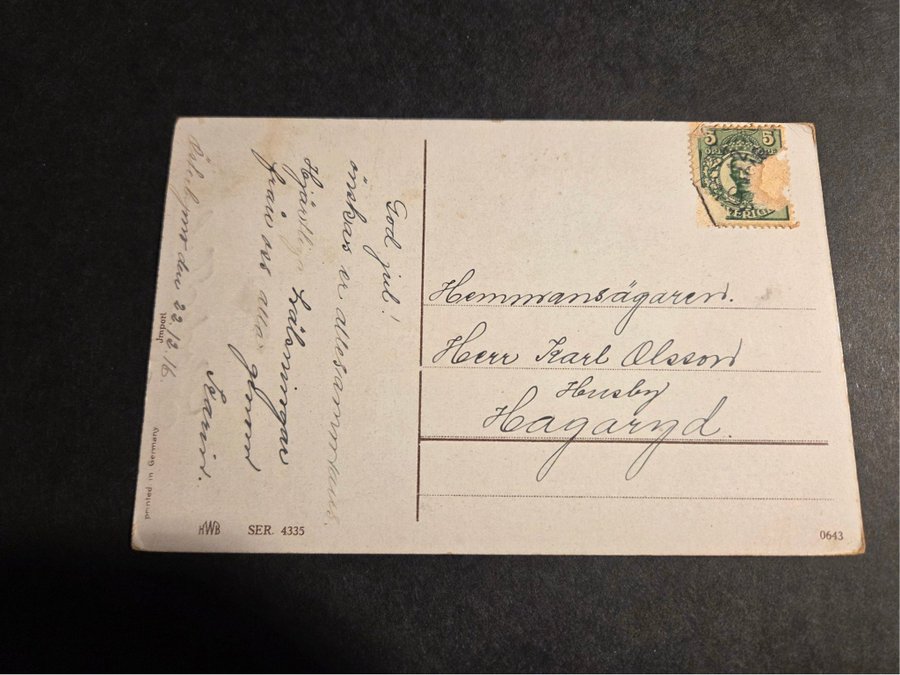 God jul!
önskas er allesammans.
Hjärtliga hälsningar
från oss alla genom
Karin.
den 22/12 16.
5 5
ÖRE
SVERIGE
Hemmansägaren.
Herr Karl Olsson
Husby
Hagaryd.
Import
printed in Germany
HWB SER. 4335
0643